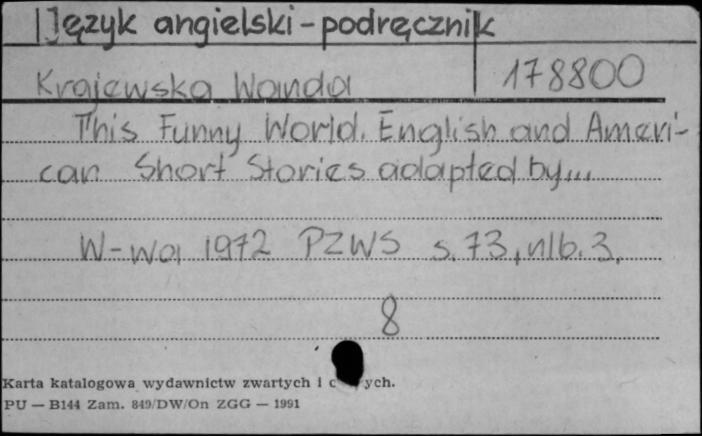 Język angielski - podręcznik
Krajewska Wanda 178800
This Funny World. English and Ameri-
can Short Stories adapted by...
W-wa 1972 PZWS s. 73, nlb. 3.
8
Karta katalogowa wydawnictw zwartych i
PU — B144 Zam. 849/DW/On ZGG — 1991